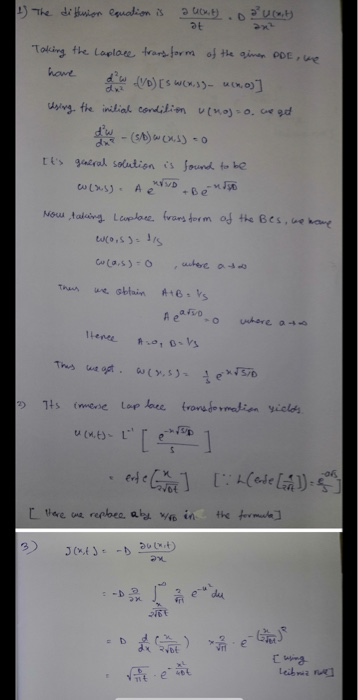 1) The diffusion equation is ∂u(x,t)/∂t = D ∂²u(x,t)/∂x²
Taking the Laplace transform of the given PDE, we
have d²w/dx² = (1/D)[s w(x,s) - u(x,0)]
Using the initial condition u(x,0)=0, we get
d²w/dx² - (s/D) w(x,s) = 0
It's general solution is found to be
w(x,s) = A e^{x√s/D} + B e^{-x√s/D}
Now, taking Laplace transform of the BCs, we have
w(0,s) = 1/s
w(a,s) = 0 , where a→∞
Thus we obtain A+B = 1/s
A e^{a√s/D} = 0 where a→∞
Hence A=0, B=1/s
Thus we get, w(x,s) = 1/s e^{-x√s/D}
2) Its inverse Laplace transformation yields
u(x,t) = L⁻¹ [ e^{-x√s/D} / s ]
= erfc [ x / 2√Dt ] [∵ L(erfc[a/2√t]) = e^{-a√s}/s]
[Here we replace a by x/√D in the formula]
3) J(x,t) = -D ∂u(x,t)/∂x
= -D ∂/∂x ∫_{x/2√Dt}^{∞} 2/√π e^{-u²} du
= D d/dx (x/2√Dt) × 2/√π · e^{-(x/2√Dt)²}
[using
= √D/πt · e^{-x²/4Dt} Leibniz rule]